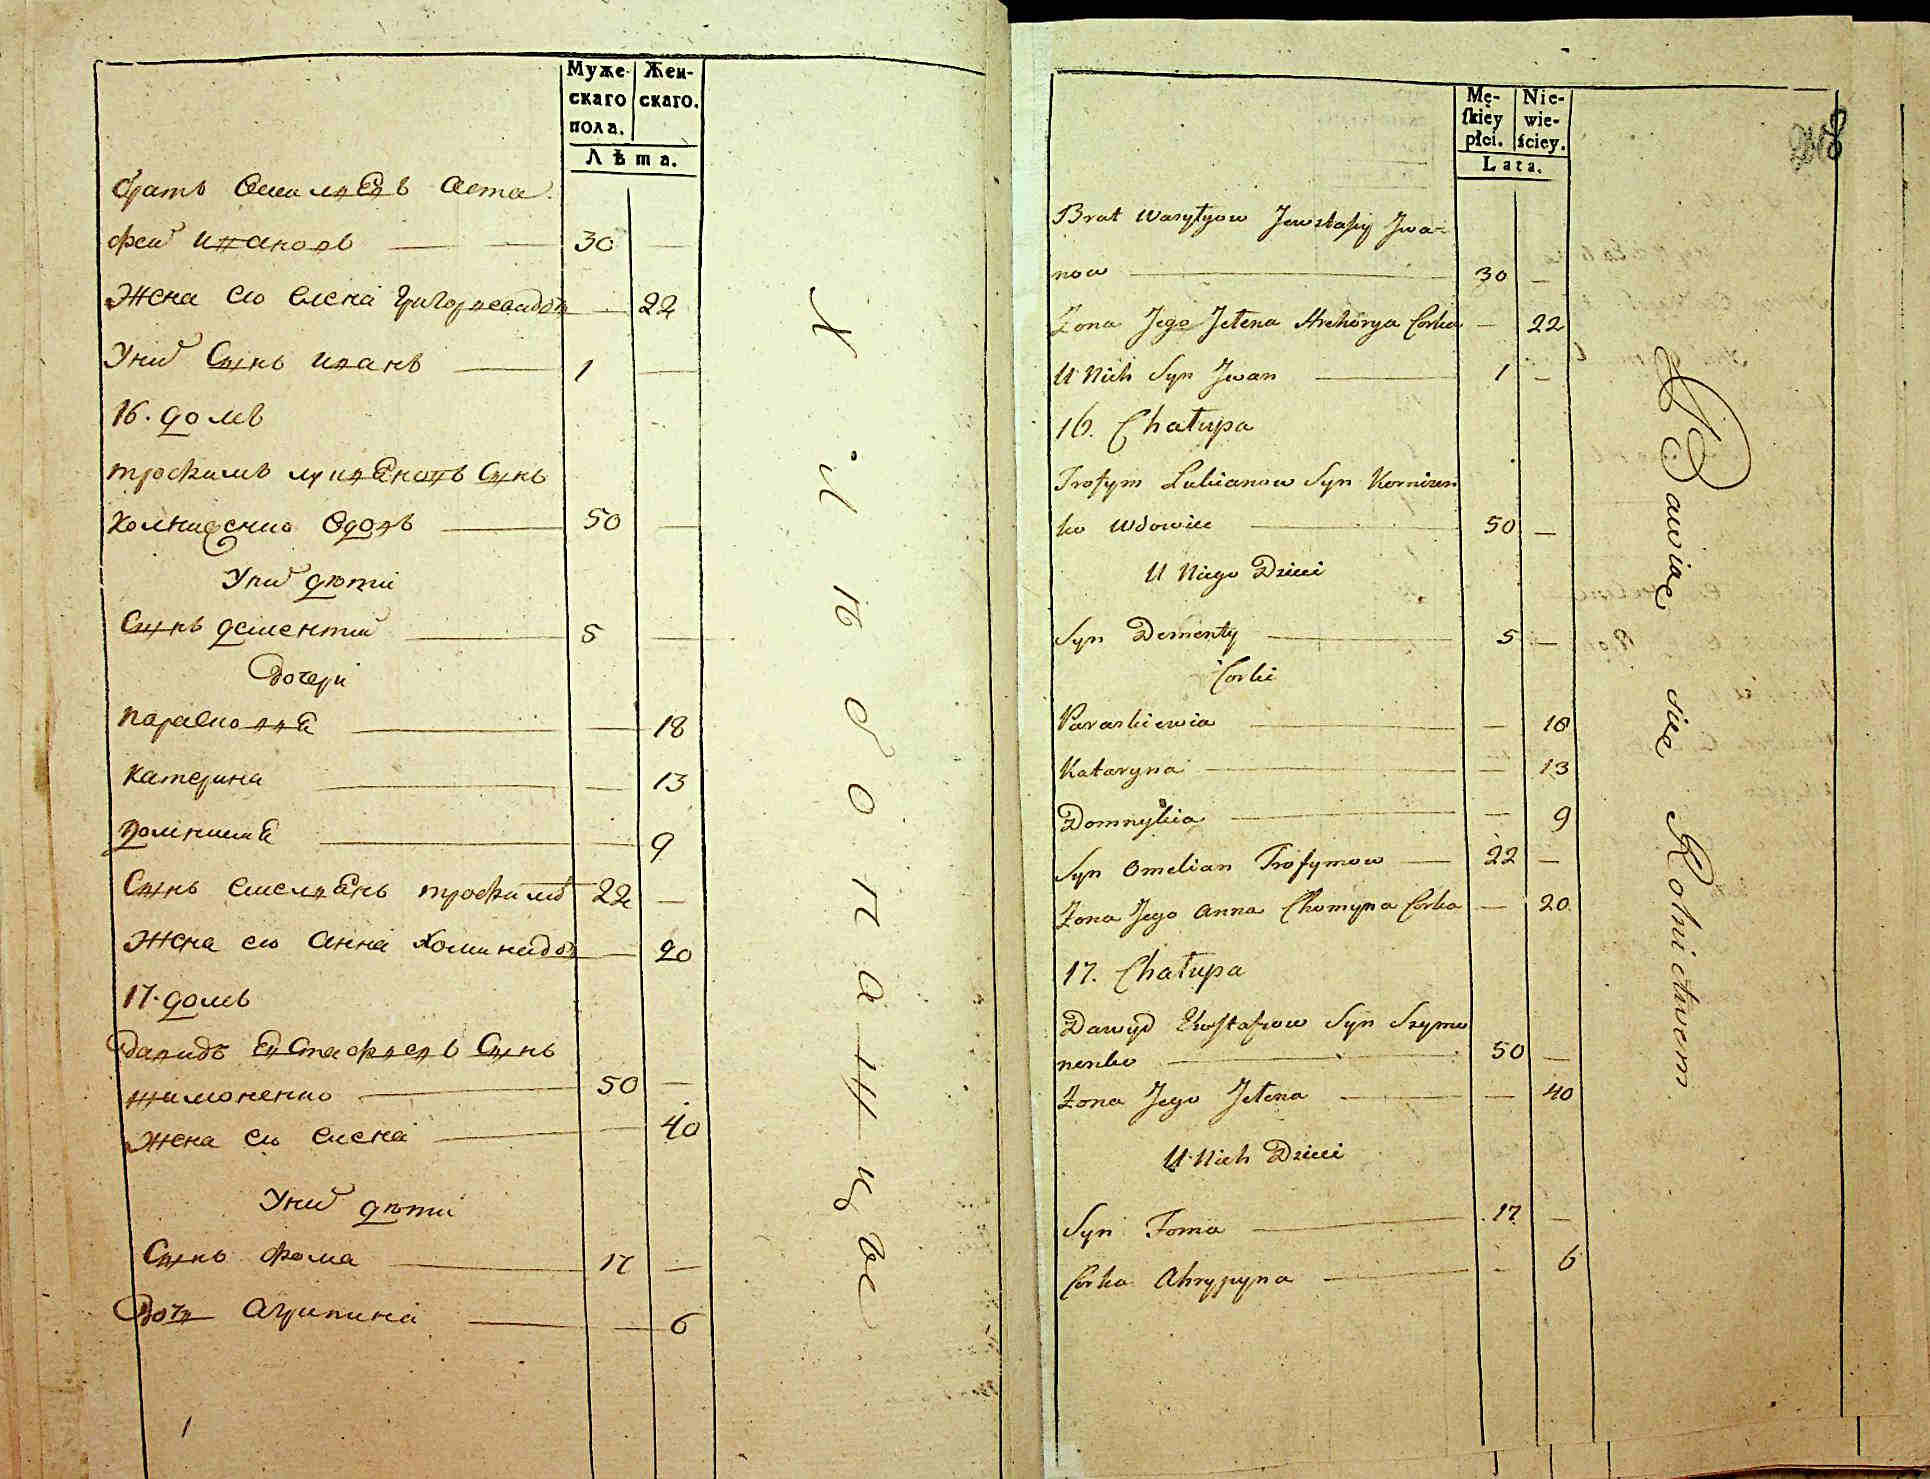 Муже- Жен-
скаго скаго.
пола.
Лѣта.
братъ Астафей
фей Ивановъ 30
Жена его Елена Григориевадочь 22
Унихъ Сынъ Иванъ 1
16. домъ
трофимъ лукъяновъ Сынъ
вдовъ 50
Унихъ дѣти
Сынъ дементий 5
Дочери
парасковья 18
катерина 13
домникия 9
Сынъ емельянъ трофимовъ 22
Жена его Анна Хоминадочь 20
17. домъ
Давидъ Евстафиевъ Сынъ
шимоненко 50
Жена его елена 40
Унихъ дѣти
Сынъ фома 17
Дочь Агрипина 6
Хлѣбопашцы
Mę- Nie-
ſkiey wie-
płci. ściey.
Lata.
Brat Wasylyow Jewstafiy Jwa-
now 30
Zona Jego Jełena Hrehorya Corka 22
U Nich Syn Jwan 1
16. Chałupa
Trofym Lukianow Syn Kornizen
ko Wdowiec 50
U Niego Dzieci
Syn Dementy 5
Corki
Paraskiewia 18
Kataryna 13
Domnykia 9
Syn Omelian Trofymow 22
Zona Jego Anna Chomyna Corka 20
17. Chałupa
Dawyd Ewstafiow Syn Szymo
nenko 50
Zona Jego Jełena 40
U Nich Dzieci
Syn Foma 17
Corka Ahrypyna 6
Bawiąc się Rolnictwem